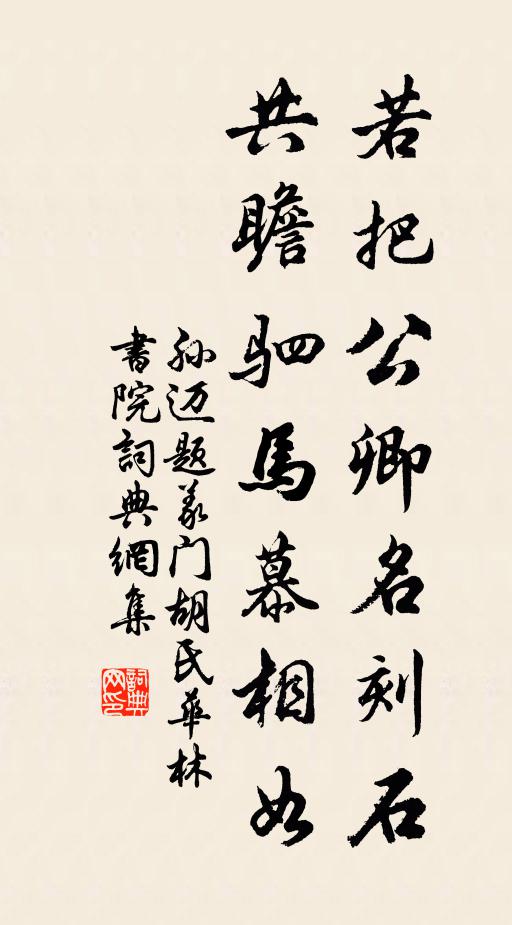 若把公卿名刻石
共瞻驷馬慕相如
孙迈题义门胡氏华林
書院詞典網集
詞典
网印